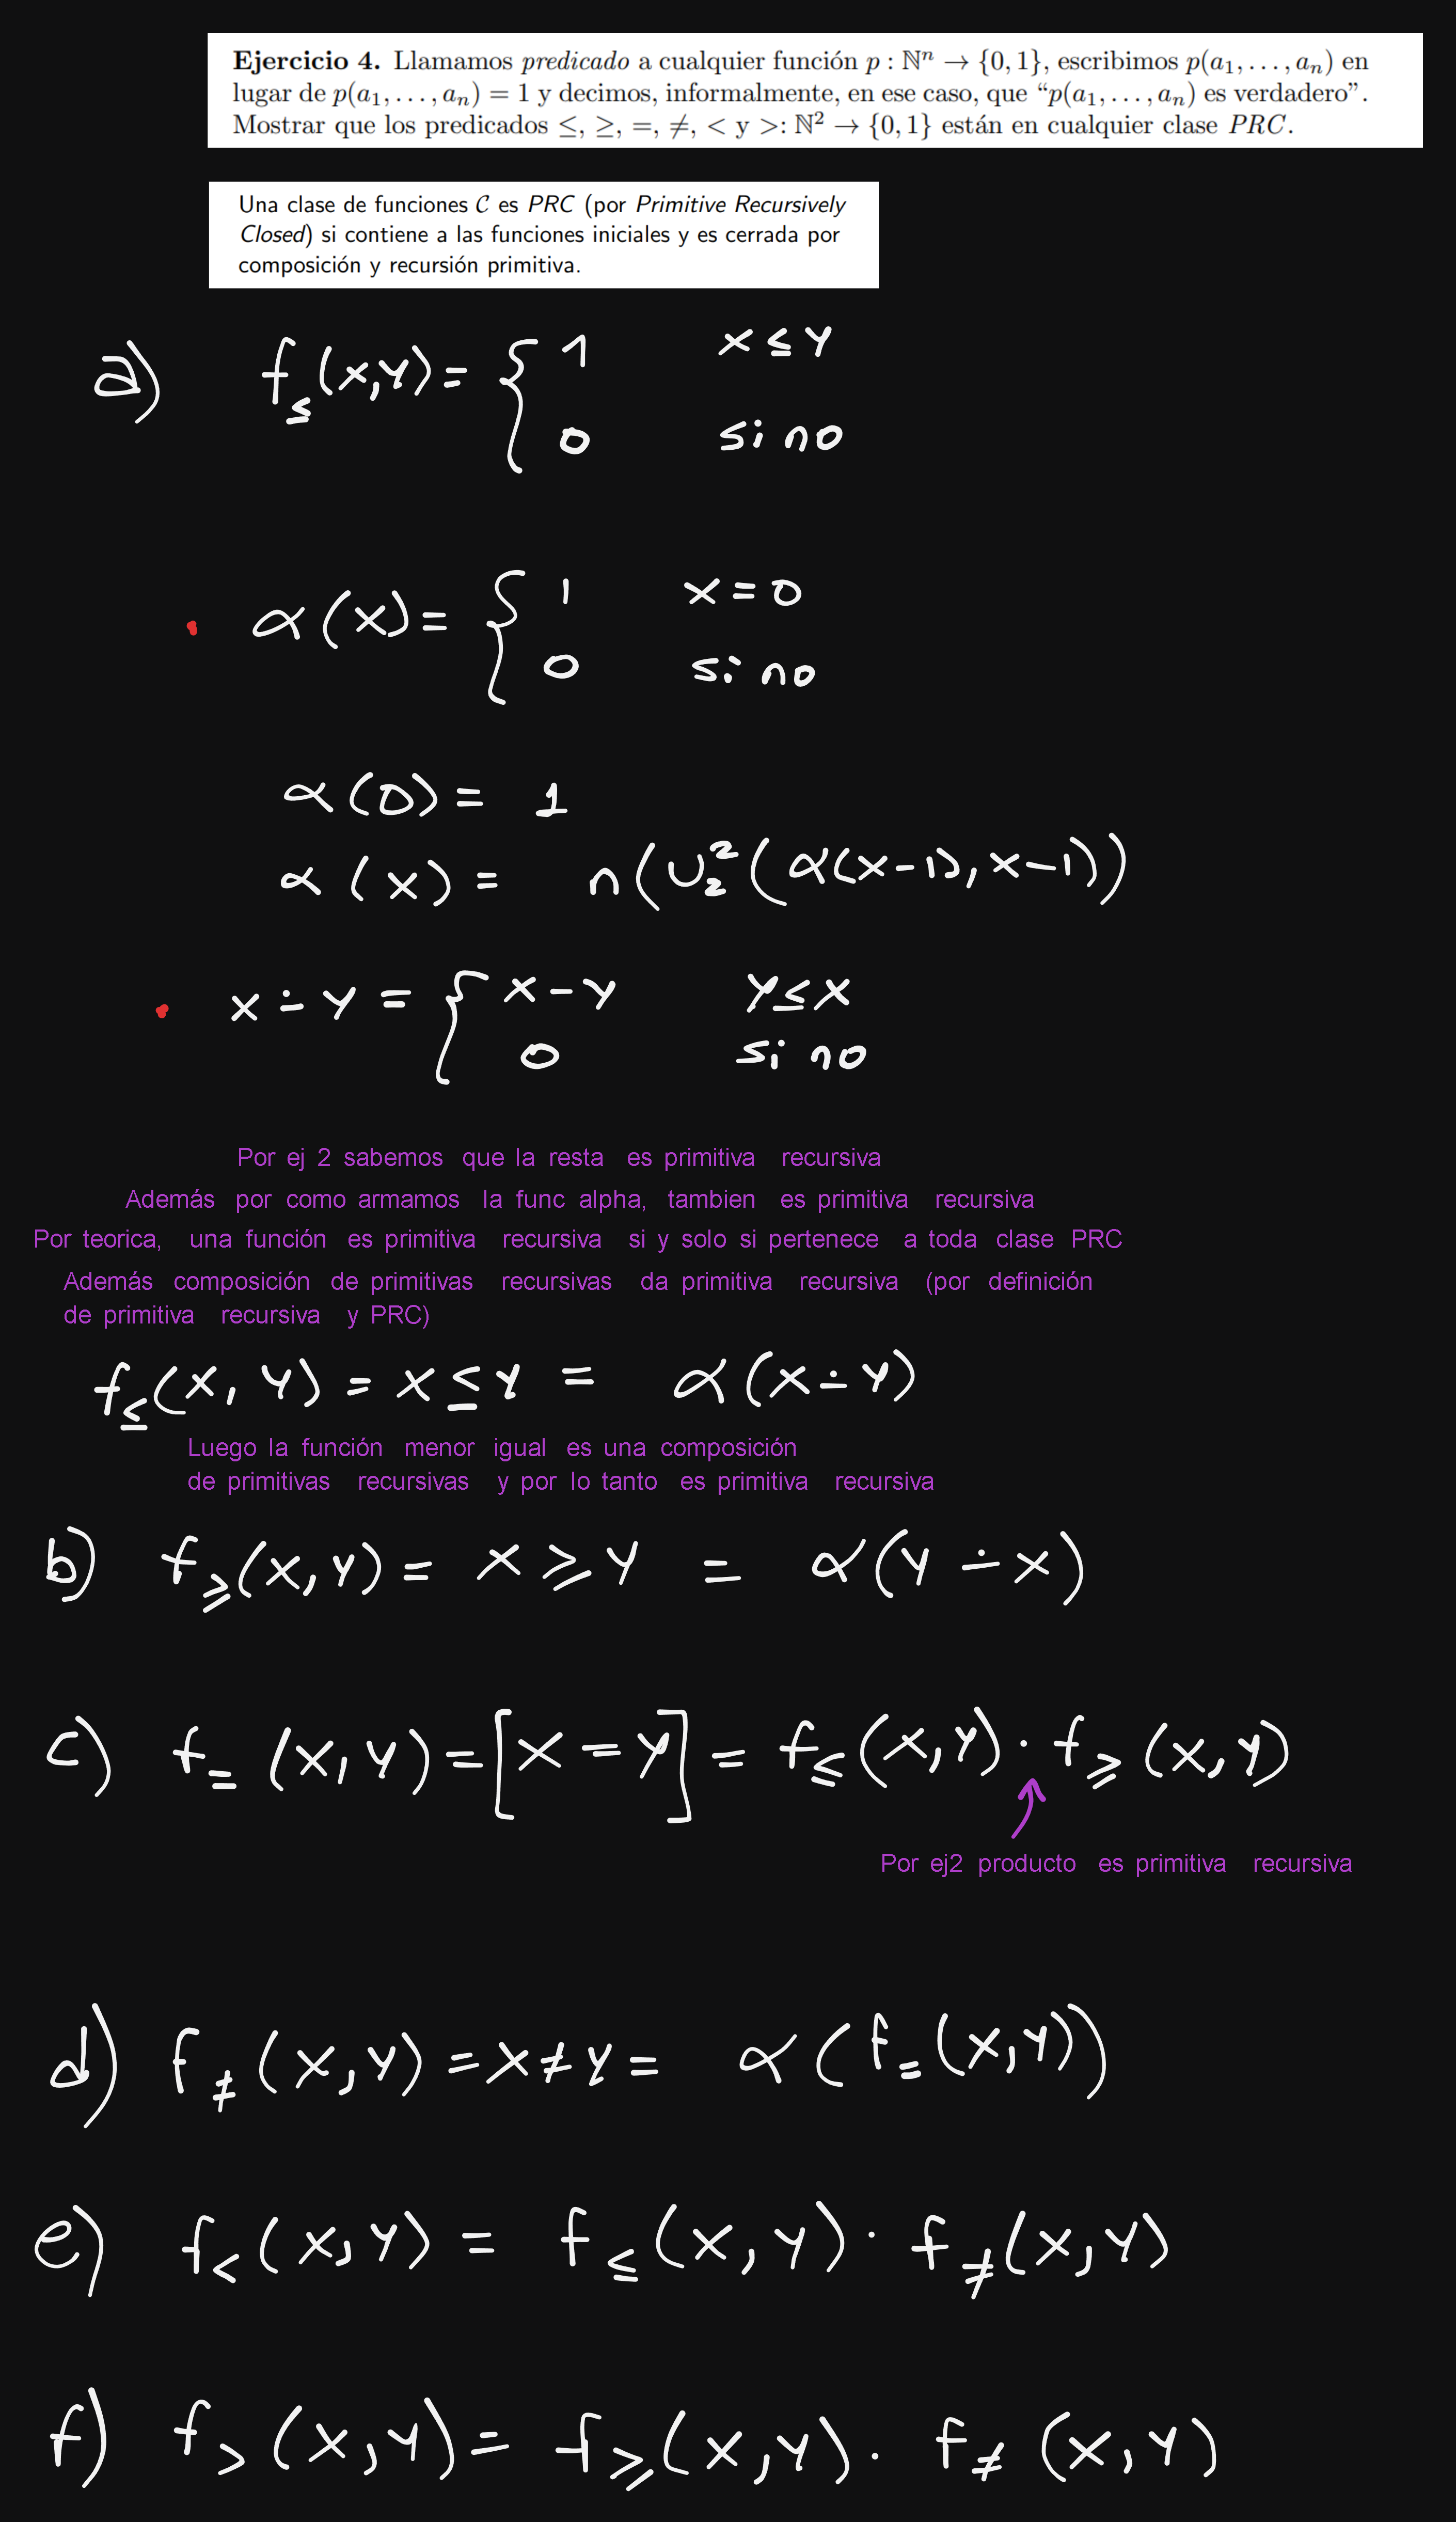 Ejercicio 4. Llamamos predicado a cualquier función p : ℕⁿ → {0, 1}, escribimos p(a₁, . . . , aₙ) en
lugar de p(a₁, . . . , aₙ) = 1 y decimos, informalmente, en ese caso, que “p(a₁, . . . , aₙ) es verdadero”.
Mostrar que los predicados ≤, ≥, =, ≠, < y >: ℕ² → {0, 1} están en cualquier clase PRC.
Una clase de funciones 𝒞 es PRC (por Primitive Recursively
Closed) si contiene a las funciones iniciales y es cerrada por
composición y recursión primitiva.
a) f≤(x,y) = { 1 x ≤ y
0 si no
α(x) = { 1 x = 0
0 si no
α(0) = 1
α(x) = n(U₂²(α(x-1), x-1))
x ∸ y = { x - y y ≤ x
0 si no
Por ej 2 sabemos que la resta es primitiva recursiva
Además por como armamos la func alpha, tambien es primitiva recursiva
Por teorica, una función es primitiva recursiva si y solo si pertenece a toda clase PRC
Además composición de primitivas recursivas da primitiva recursiva (por definición
de primitiva recursiva y PRC)
f≤(x, y) = x ≤ y = α(x ∸ y)
Luego la función menor igual es una composición
de primitivas recursivas y por lo tanto es primitiva recursiva
b) f≥(x,y) = x ≥ y = α(y ∸ x)
c) f=(x,y) = [x = y] = f≤(x,y) · f≥(x,y)
Por ej2 producto es primitiva recursiva
d) f≠(x,y) = x ≠ y = α(f=(x,y))
e) f<(x,y) = f≤(x,y) · f≠(x,y)
f) f>(x,y) = f≥(x,y) · f≠(x,y)